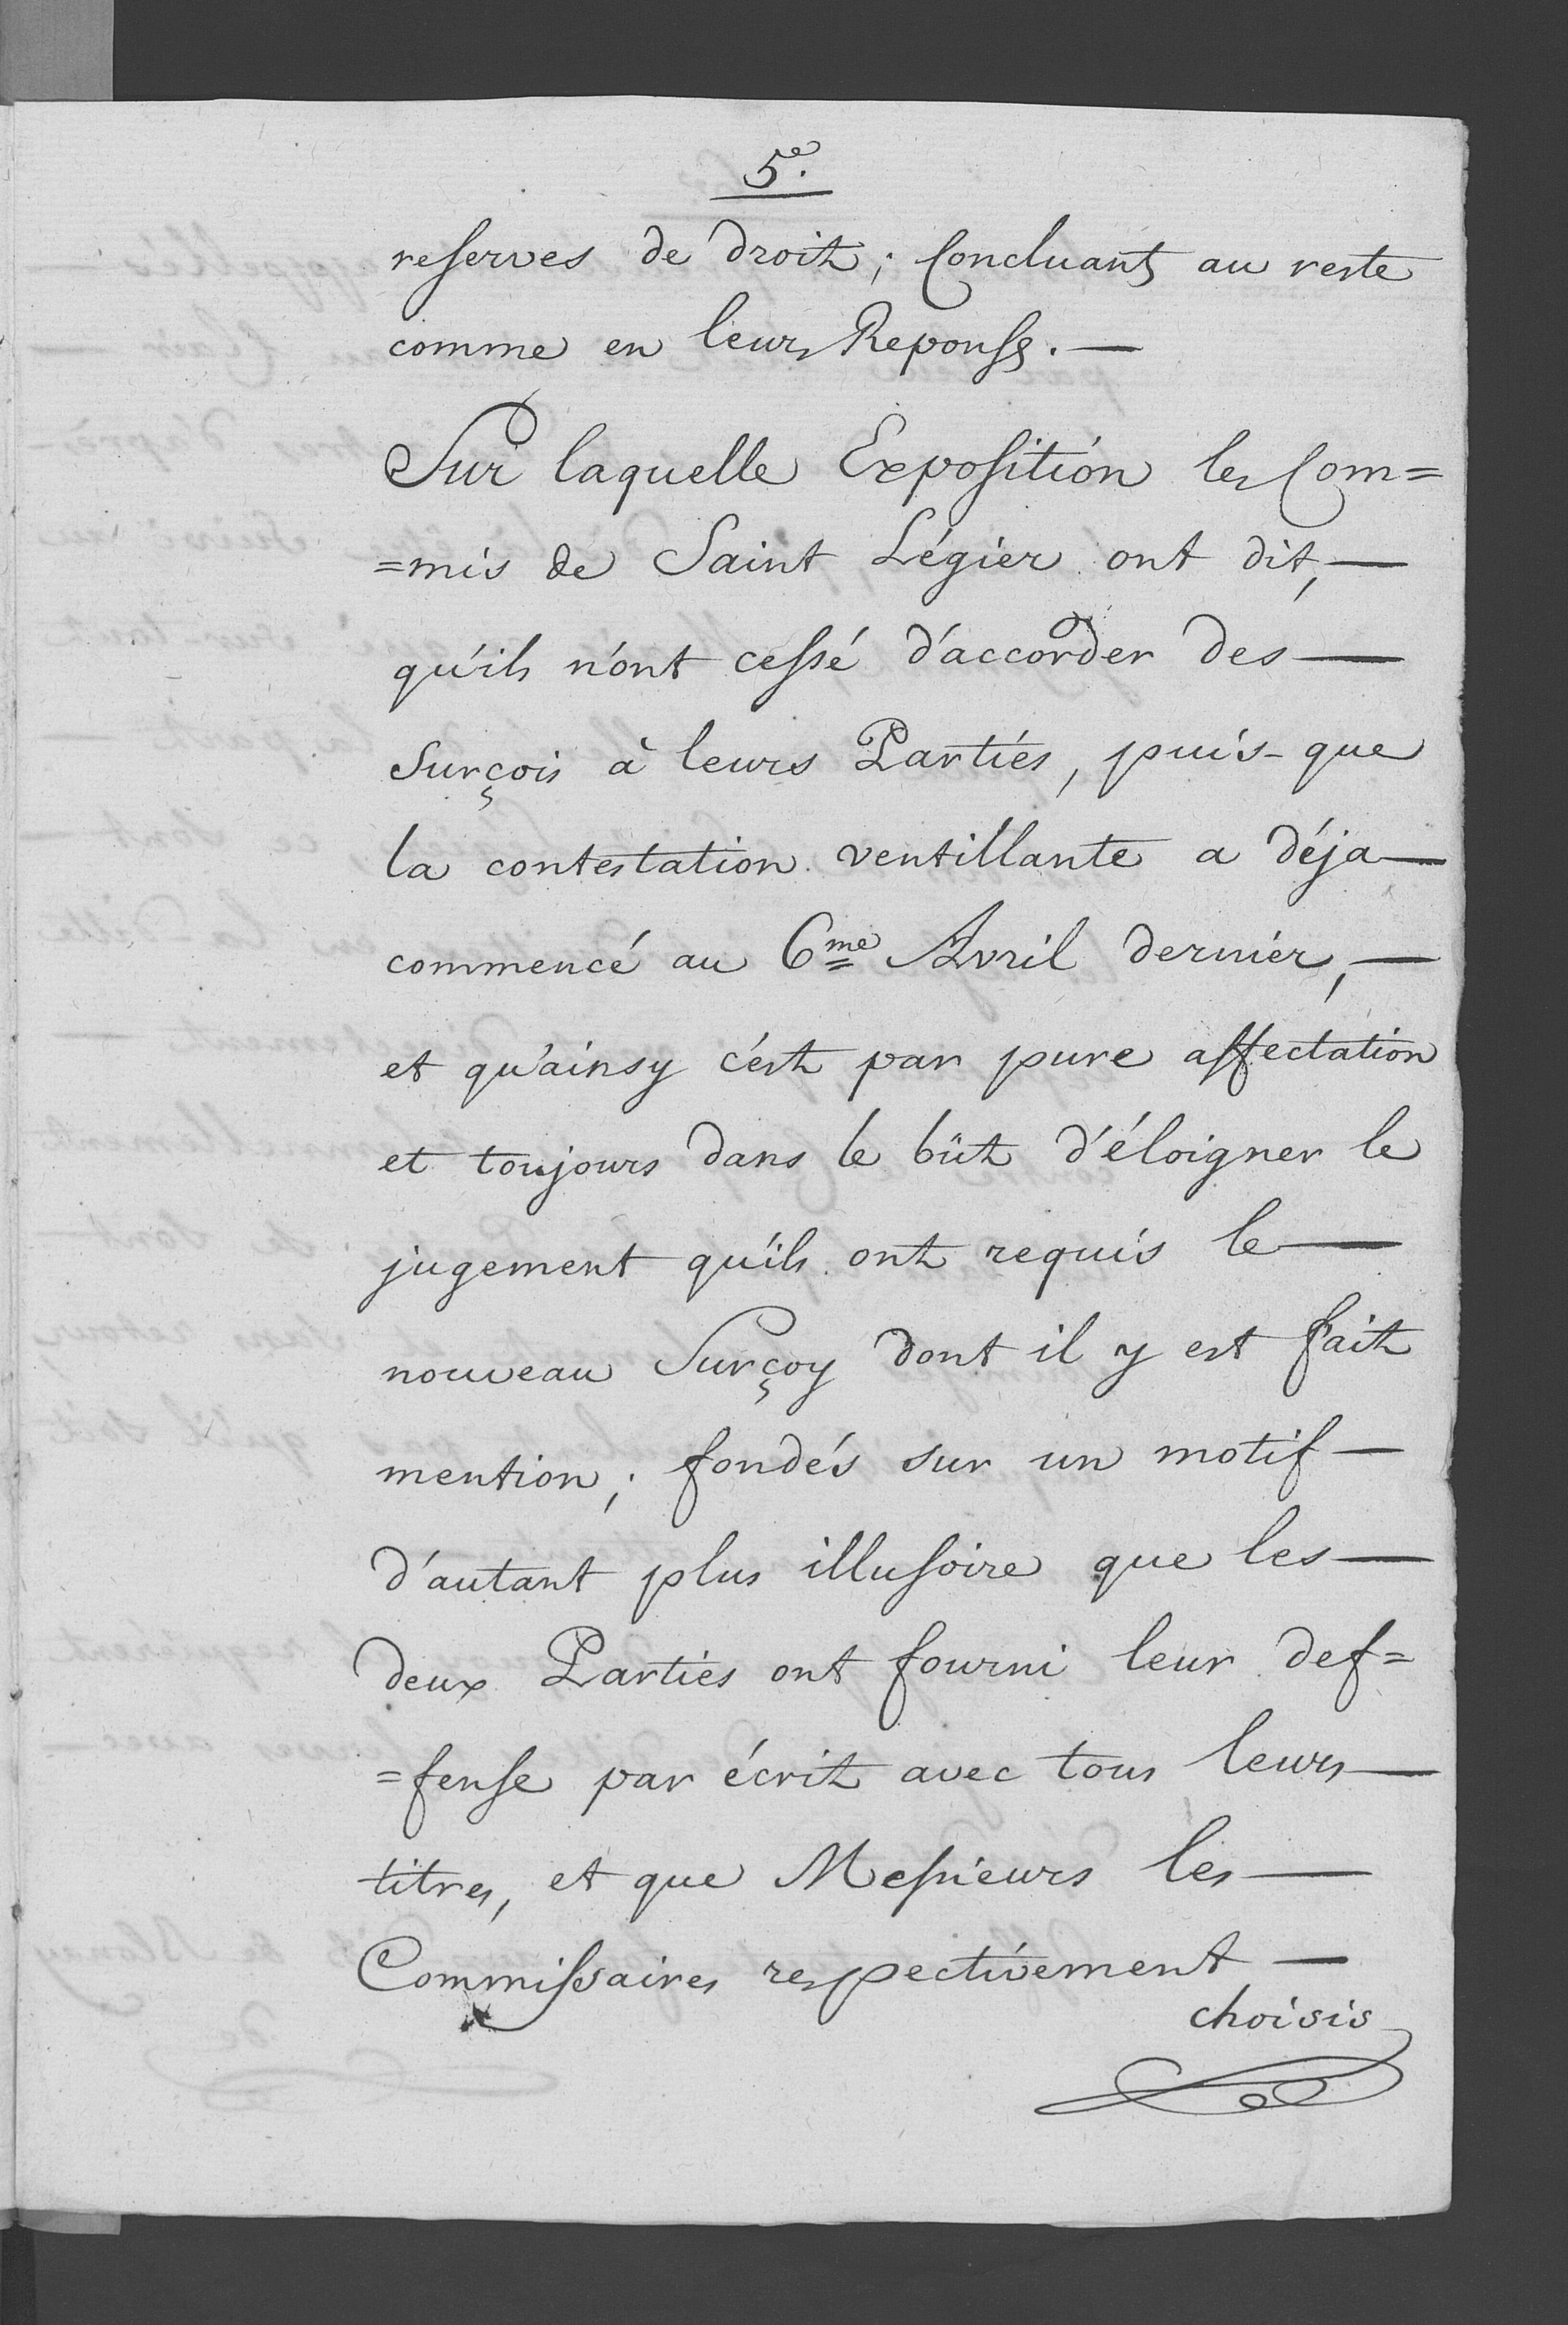 5.e
reserves de droit; Concluant au reste
comme en leurs Reponse. —
Sur laquelle Exposition les Com=
=mis de Saint Légier ont dit, —
qu'ils n'ont cessé d'accorder des —
surçois à leurs Parties, puis-que
la contestation ventillante a déja —
commencé au 6.me Avril dernier, —
et qu'ainsy c'est par pure affectation
et toujours dans le bût d'éloigner le
jugement qu'ils ont requis le —
nouveau Surçoy dont il y est fait
mention; fondés sur un motif —
d'autant plus illusoire que les —
deux Parties ont fourni leur def=
=fense par écrit avec tous leurs —
titres, et que Messieurs les —
Commissaires respectivement —
choisis